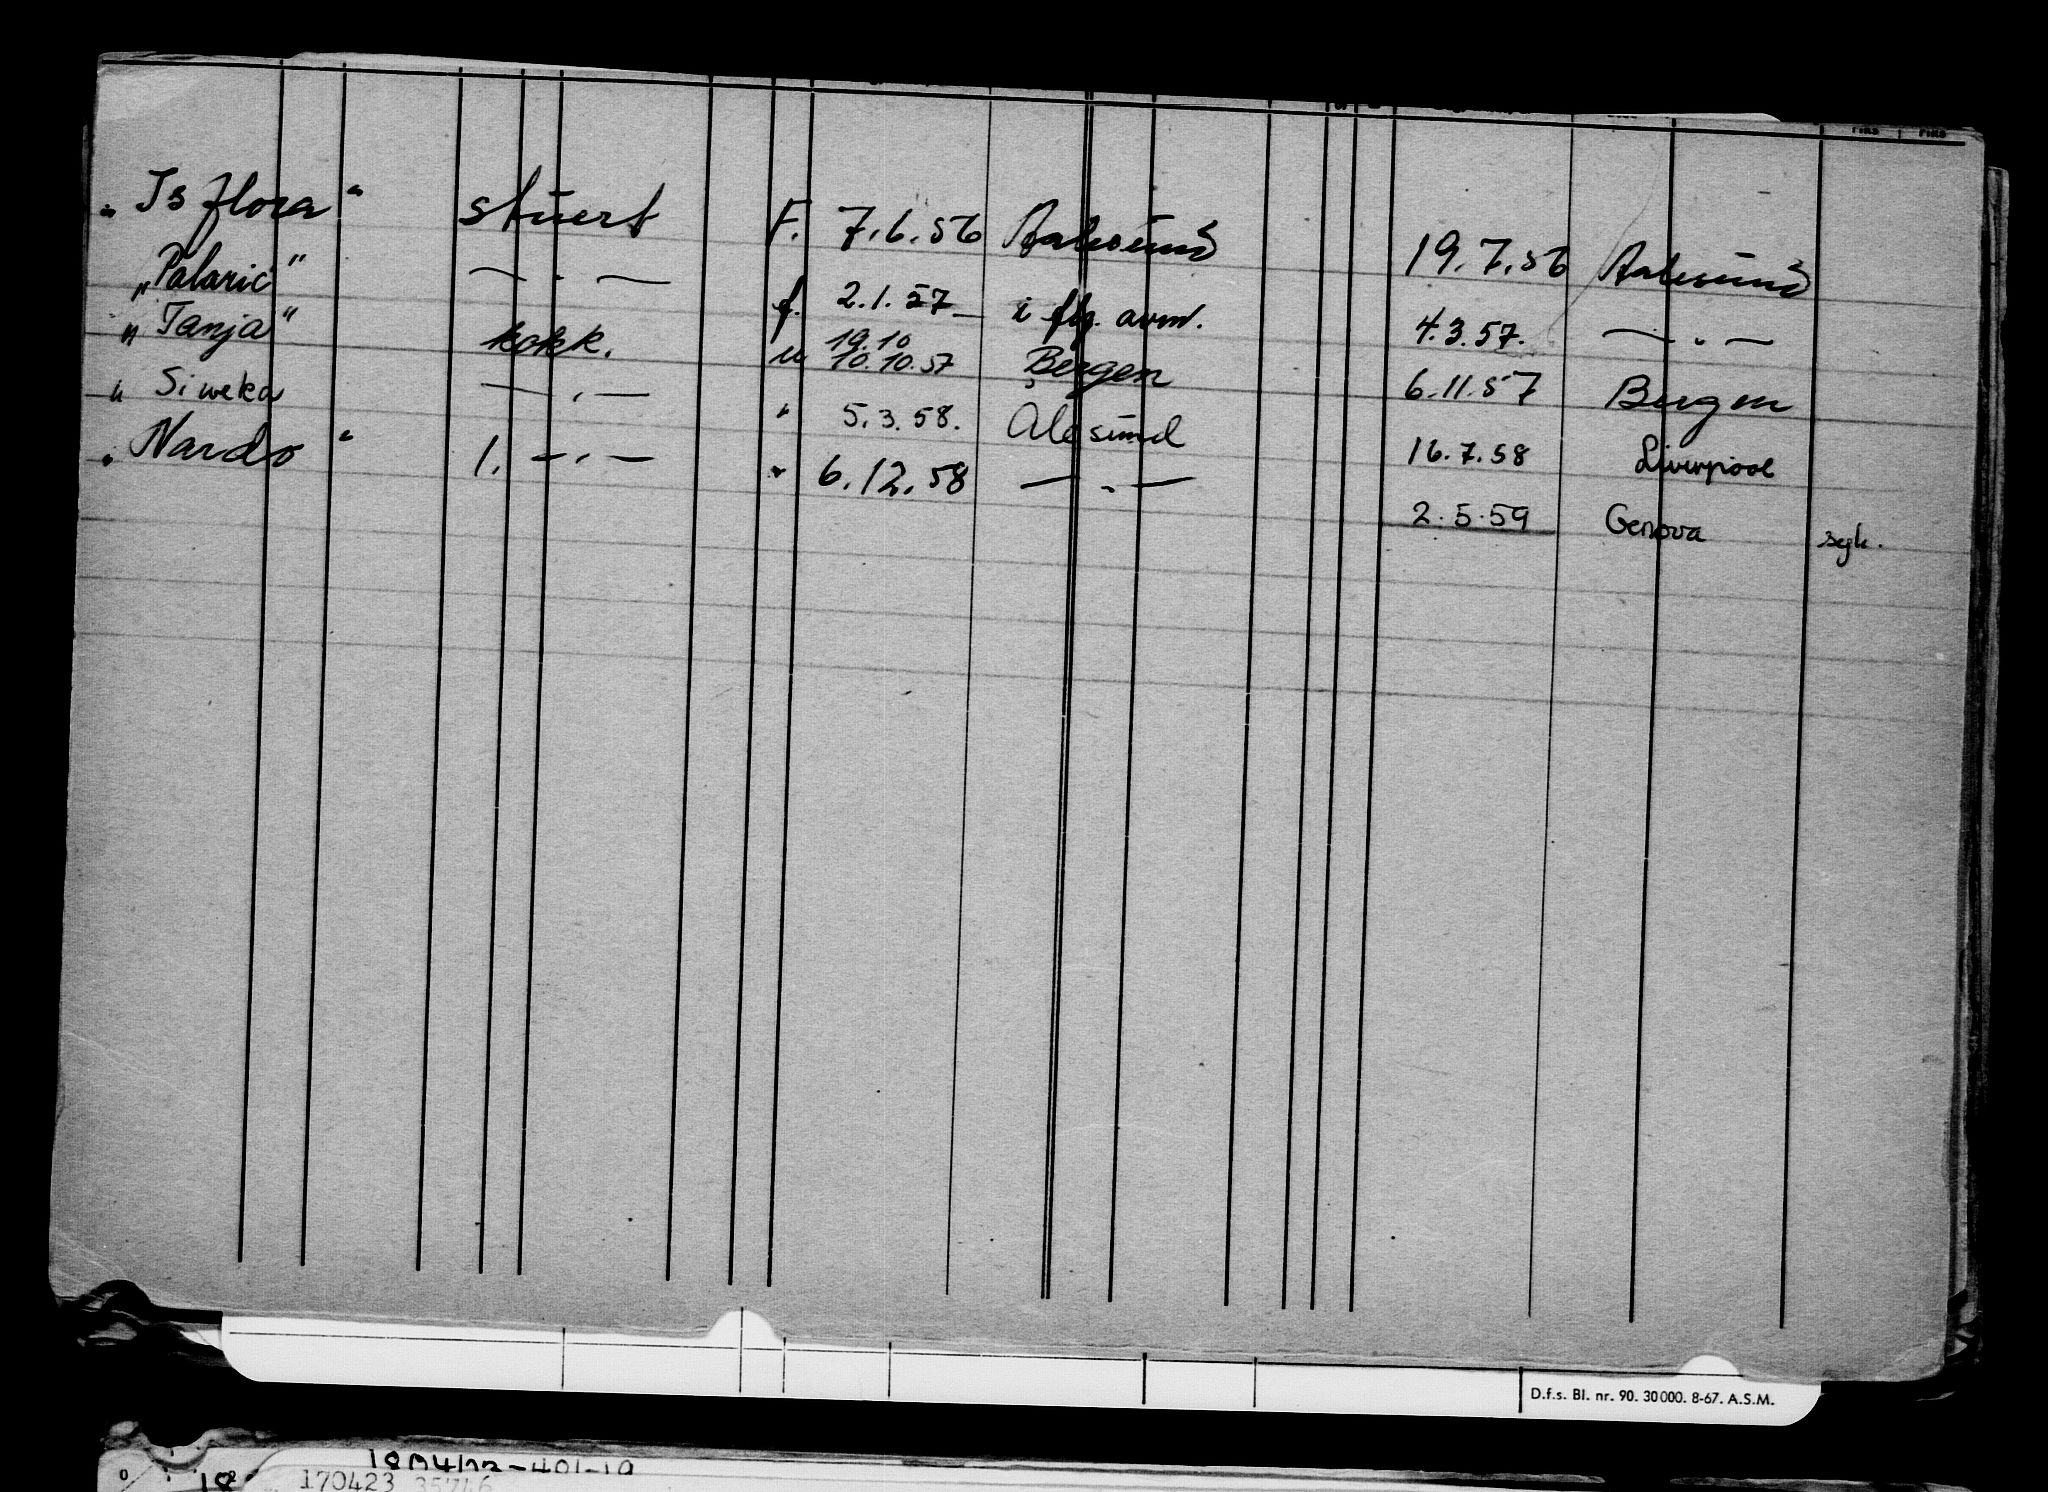 „ Is flora “ stuert F. 7.6.56 Aalesund 19.7.56 Aalesund
„Polaric“ — . — f. 2.1.57 — i flg. avm. 4.3.57. — . —
„ Tanja“ kokk. " 19.10 10.10.57 Bergen 6.11.57 Bergen
" Siweka — . — " 5.3.58. Alesund 16.7.58 Liverpool
„ Nardo “ 1. — . — " 6.12.58 — . — 2.5.59 Genova syk.
D.f.s. Bl. nr. 90. 30000. 8-67. A.S.M.
170423 35746